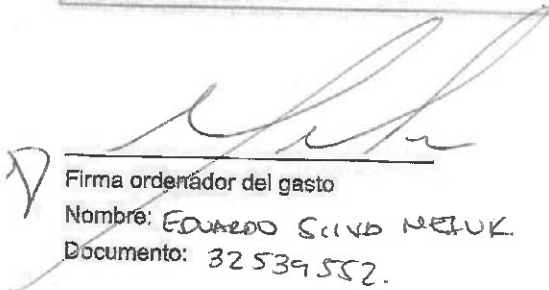 Firma ordenador del gasto
Nombre: EDUARDO SILVA MELUK.
Documento: 32539552.